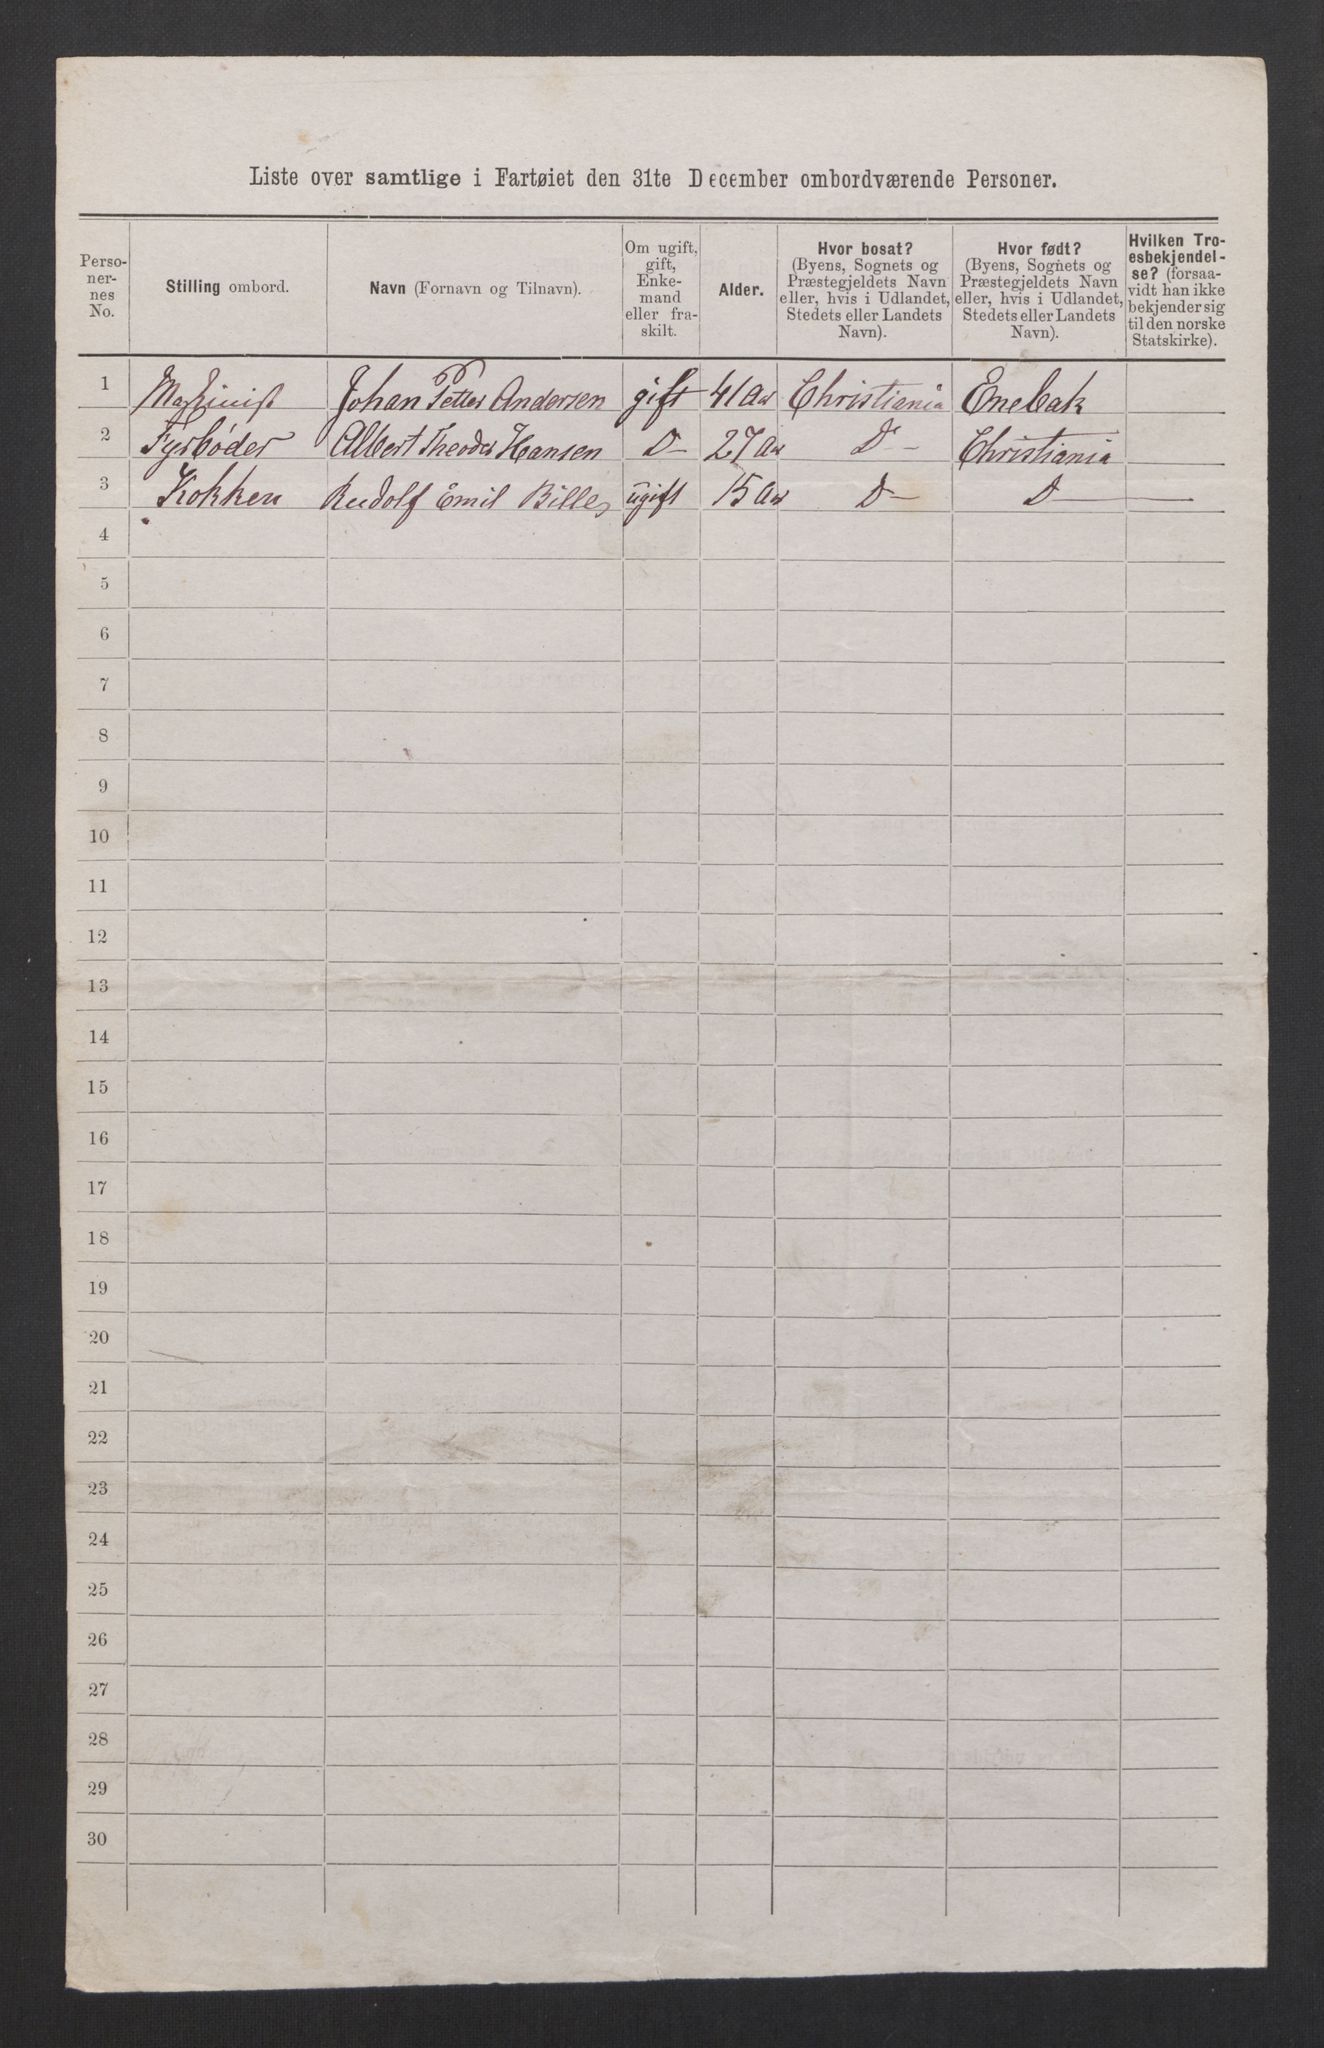 Liste over samtlige i Fartøiet den 31te December ombordværende Personer.
Perso-
ner-
nes
No.
Stilling ombord.
Navn (Fornavn og Tilnavn).
Om ugift,
gift,
Enke-
mand
eller fra-
skilt.
Alder.
Hvor bosat?
(Byens, Sognets og
Præstegjeldets Navn
eller, hvis i Udlandet,
Stedets eller Landets
Navn).
Hvor født?
(Byens, Sognets og
Præstegjeldets Navn
eller, hvis i Udlandet,
Stedets eller Landets
Navn).
Hvilken Tro-
esbekjendel-
se? (forsaa-
vidt han ikke
bekjender sig
til den norske
Statskirke).
1 Maskinist Johan Petter Andersen gift 41 Aar Christiania Enebak
2 Fyrbøder Albert Theodor Hansen D— 27 Aar D— Christiania —
3 Kokken Rudolf Emil Bille ugift 15 Aar D— D —
4
5
6
7
8
9
10
11
12
13
14
15
16
17
18
19
20
21
22
23
24
25
26
27
28
29
30